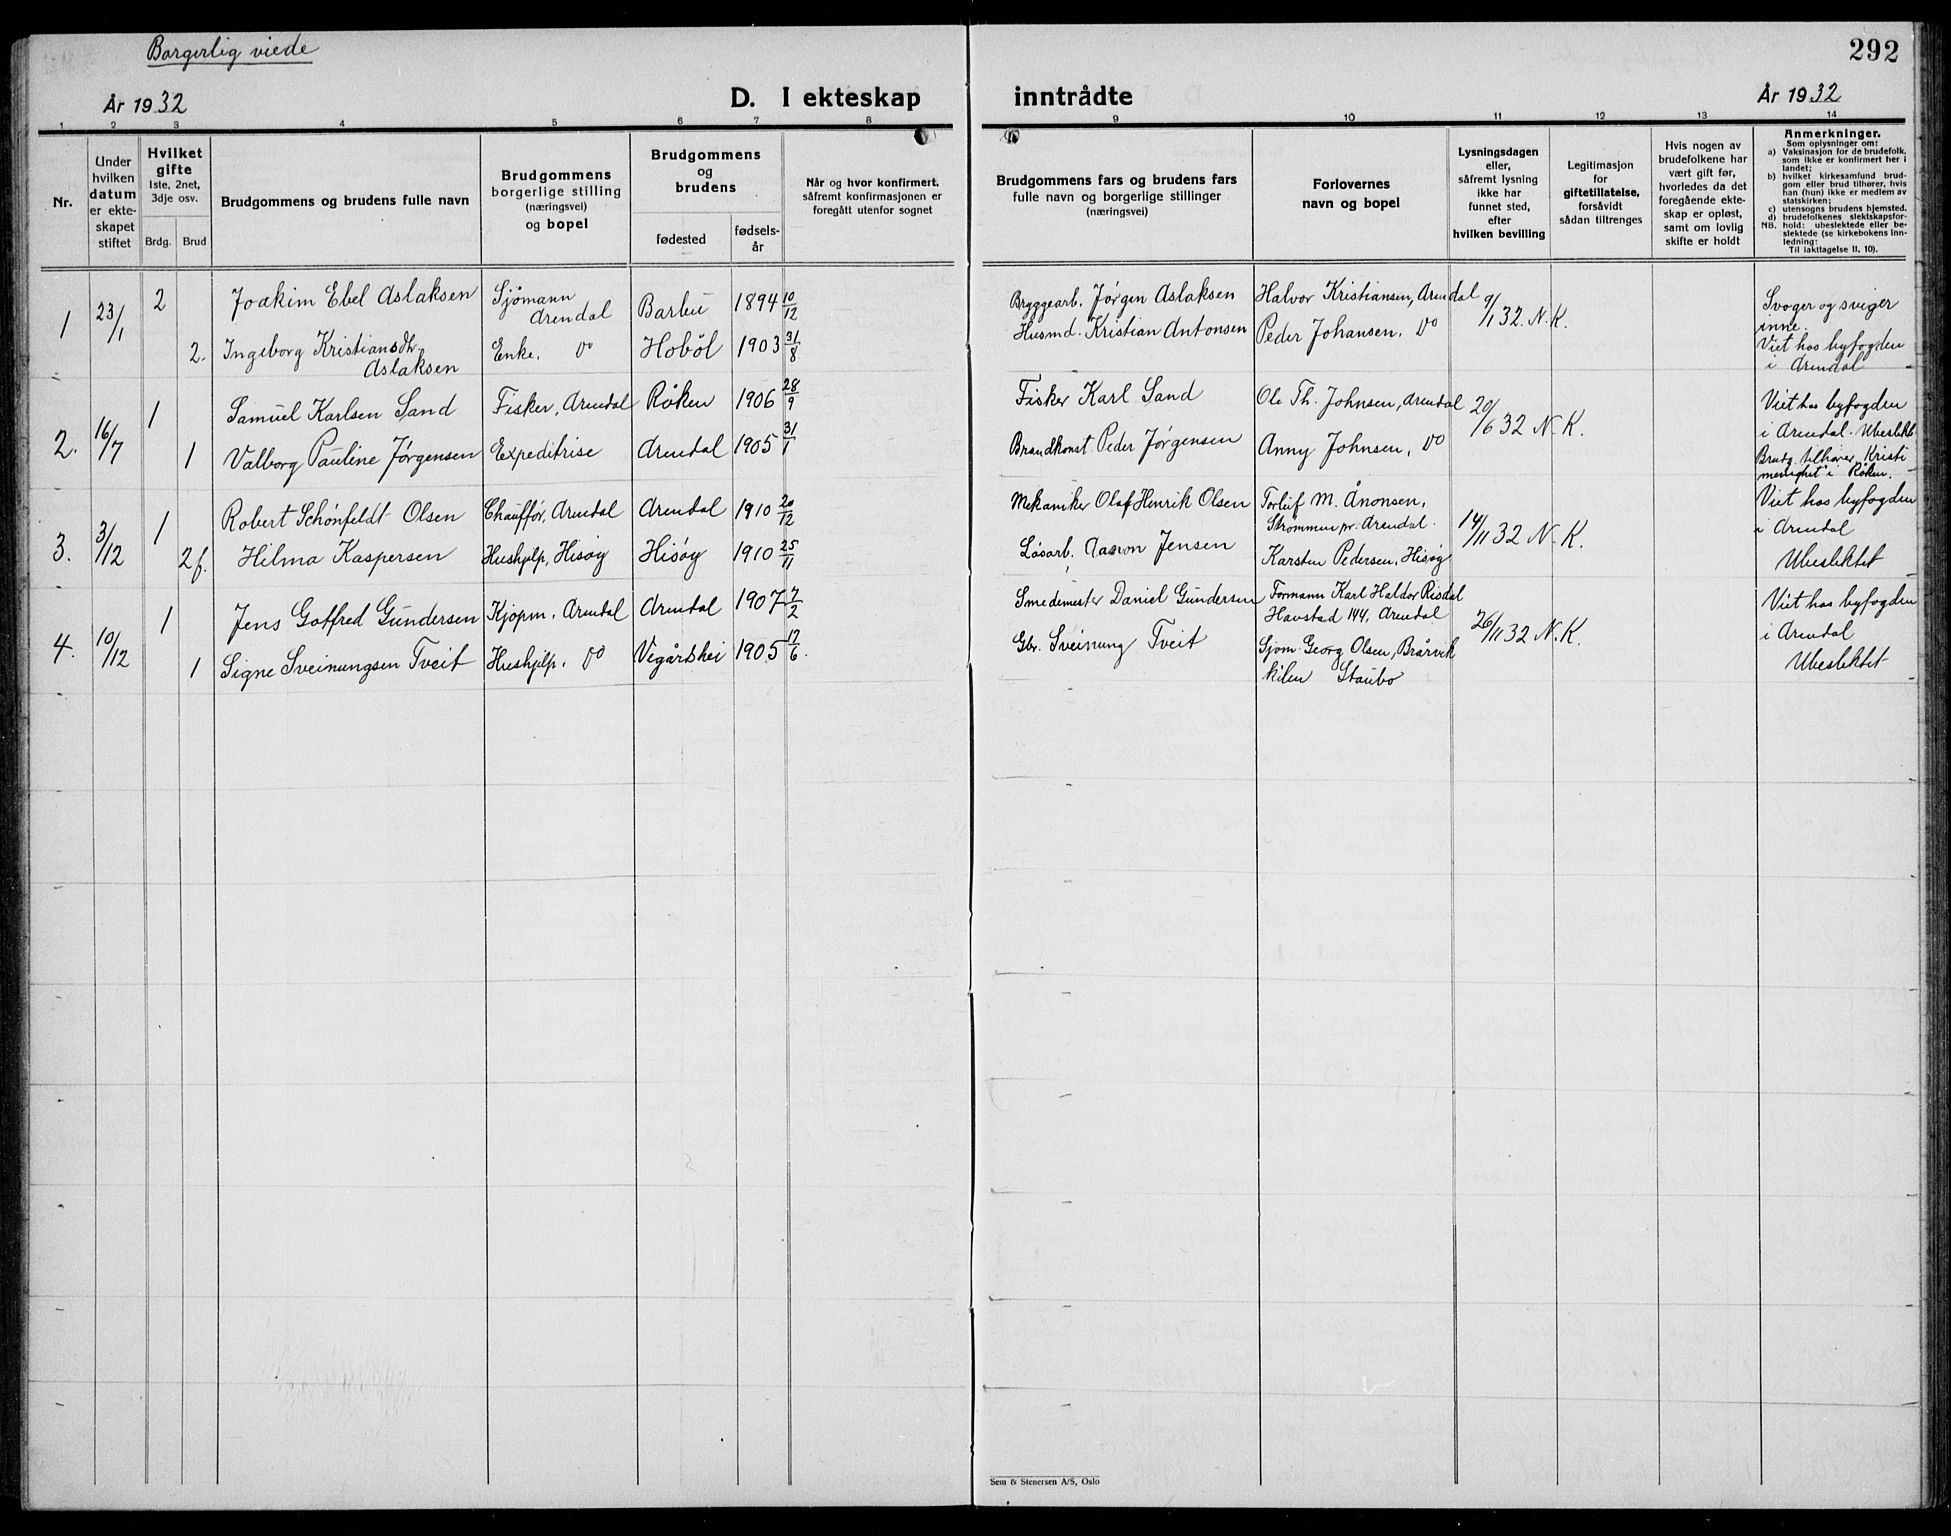 Borgerlig viede
292
År 1932
D. I ekteskap
inntrådte
År 1932
1 2 3 4 5 6 7 8 9 10 11 12 13 14
Nr.
Under
hvilken
datum
er ekte-
skapet
stiftet
Hvilket
gifte
1ste, 2net,
3dje osv.
Brdg.
Brud
Brudgommens og brudens fulle navn
Brudgommens
borgerlige stilling
(næringsvei)
og bopel
Brudgommens
og
brudens
fødested
fødsels-
år
Når og hvor konfirmert,
såfremt konfirmasjonen er
foregått utenfor sognet
Brudgommens fars og brudens fars
fulle navn og borgerlige stillinger
(næringsvei)
Forlovernes
navn og bopel
Lysningsdagen
eller,
såfremt lysning
ikke har
funnet sted,
efter
hvilken bevilling
Legitimasjon
for
giftetillatelse,
forsåvidt
sådan tiltrenges
Hvis nogen av
brudefolkene har
vært gift før,
hvorledes da det
foregående ekte-
skap er opløst,
samt om lovlig
skifte er holdt
Anmerkninger.
Som oplysninger om:
a) Vaksinasjon for de brudefolk,
som ikke er konfirmert her i
landet;
b) hvilket kirkesamfund brud-
gom eller brud tilhører, hvis
han (hun) ikke er medlem av
statskirken;
c) utensogns brudens hjemsted.
d) brudefolkenes slektskapsfor-
NB. hold: ubeslektede eller be-
slektede (se kirkebokens inn-
ledning:
Til iakttagelse II. 10).
1
23/1
2
Joakim Ebel Aslaksen
Sjömann
Arendal
Barbu
1894 10/12
Bryggearb. Jørgen Aslaksen
Halvor Kristiansen, Arendal
9/1 32. N.K.
Svoger og sviger
inne.
2.
Ingeborg Kristiansdtr.
Aslaksen
Enke. Do
Hobøl
1903 31/8
Husmd. Kristian Antonsen
Peder Johansen. Do
Viet hos byfogden
i Arendal
2.
16/7
1
Samuel Karlsen Sand
Fisker, Arendal
Røken
1906 28/9
Fisker Karl Sand
Ole Th. Johnsen, Arendal
20/6 32 N.K.
Viet hos byfogden
i Arendal. Ubeslekt.
1
Valborg Pauline Jørgensen
Expeditrise
Arendal
1905 31/1
Brandkonst. Peder Jørgensen
Anny Johnsen, Do
Brudg. tilhører Kristi
menighet i Røken.
3.
3/12
1
Robert Schönfeldt Olsen
Chauffør, Arendal
Arendal
1910 20/12
Mekaniker Olaf Henrik Olsen
Torleif M. Ånonsen,
Strømmen pr. Arendal.
14/11 32 N.K.
Viet hos byfogden
i Arendal
2 f.
Hilma Kaspersen
Hushjelp, Hisøy
Hisøy
1910 25/11
Løsarb. Aanon Jensen
Karsten Pedersen, Hisøy
Ubeslektet
4.
10/12
1
Jens Gotfred Gundersen
Kjøpm, Arendal
Arendal
1907 7/2
Smedemester Daniel Gundersen
Formann Karl Haldor Risdal
Havstad 144, Arendal
26/11 32 N.K.
Viet hos byfogden
i Arendal
1
Signe Sveinungsen Tveit
Hushjelp. Do
Vegårdshei
1905 17/6.
Gbr. Sveinung Tveit
Sjøm. Georg Olsen, Brårvik
kilen Staubo
Ubeslektet
Sem & Stenersen A/S, Oslo